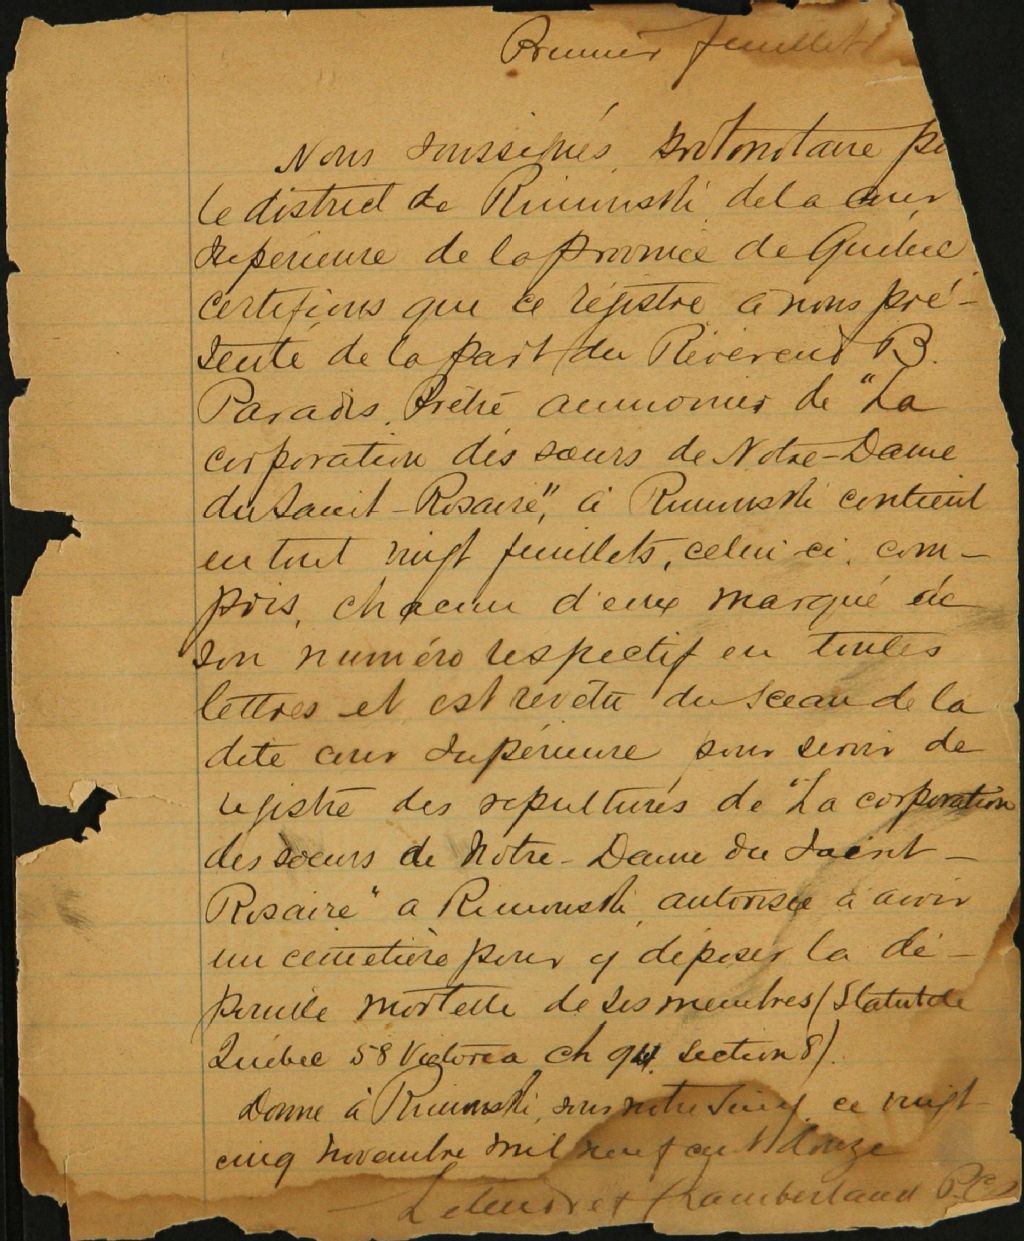 Premier feuillet
Nous soussignés protonotaire po
le district de Rimouski de la cour
supérieure de la province de Québec
certifions que ce régistre à nous pré-
senté de la part du Révérend B.
Paradis, Prêtre aumonier de "La
corporation des sœurs de Notre-Dame
du Saint-Rosaire", à Rimouski contient
en tout vingt feuillets, celui-ci, com-
pris, chacun d'eux marqué de
son numéro respectif en toutes
lettres et est revétu du sceau de la
dite cour supérieure pour servir de
régistre des sépultures de "La corporation
des sœurs de Notre-Dame du Saint-
Rosaire" a Rimouski, autorisée à avoir
un cimetière pour y déposer la dé-
pouille mortelle de ses membres (Statut de
Québec 58 Victoria ch 94 section 8).
Donné à Rimouski, sous notre seing, ce vingt
cinq novembre mil neuf cent douze
Letendre et Chamberland P.C.S